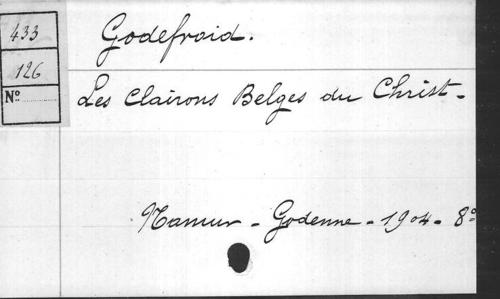 433
126
Nº
Godefroid.
Les Clairons Belges du Christ.
Namur - Godenne - 1904 - 8º